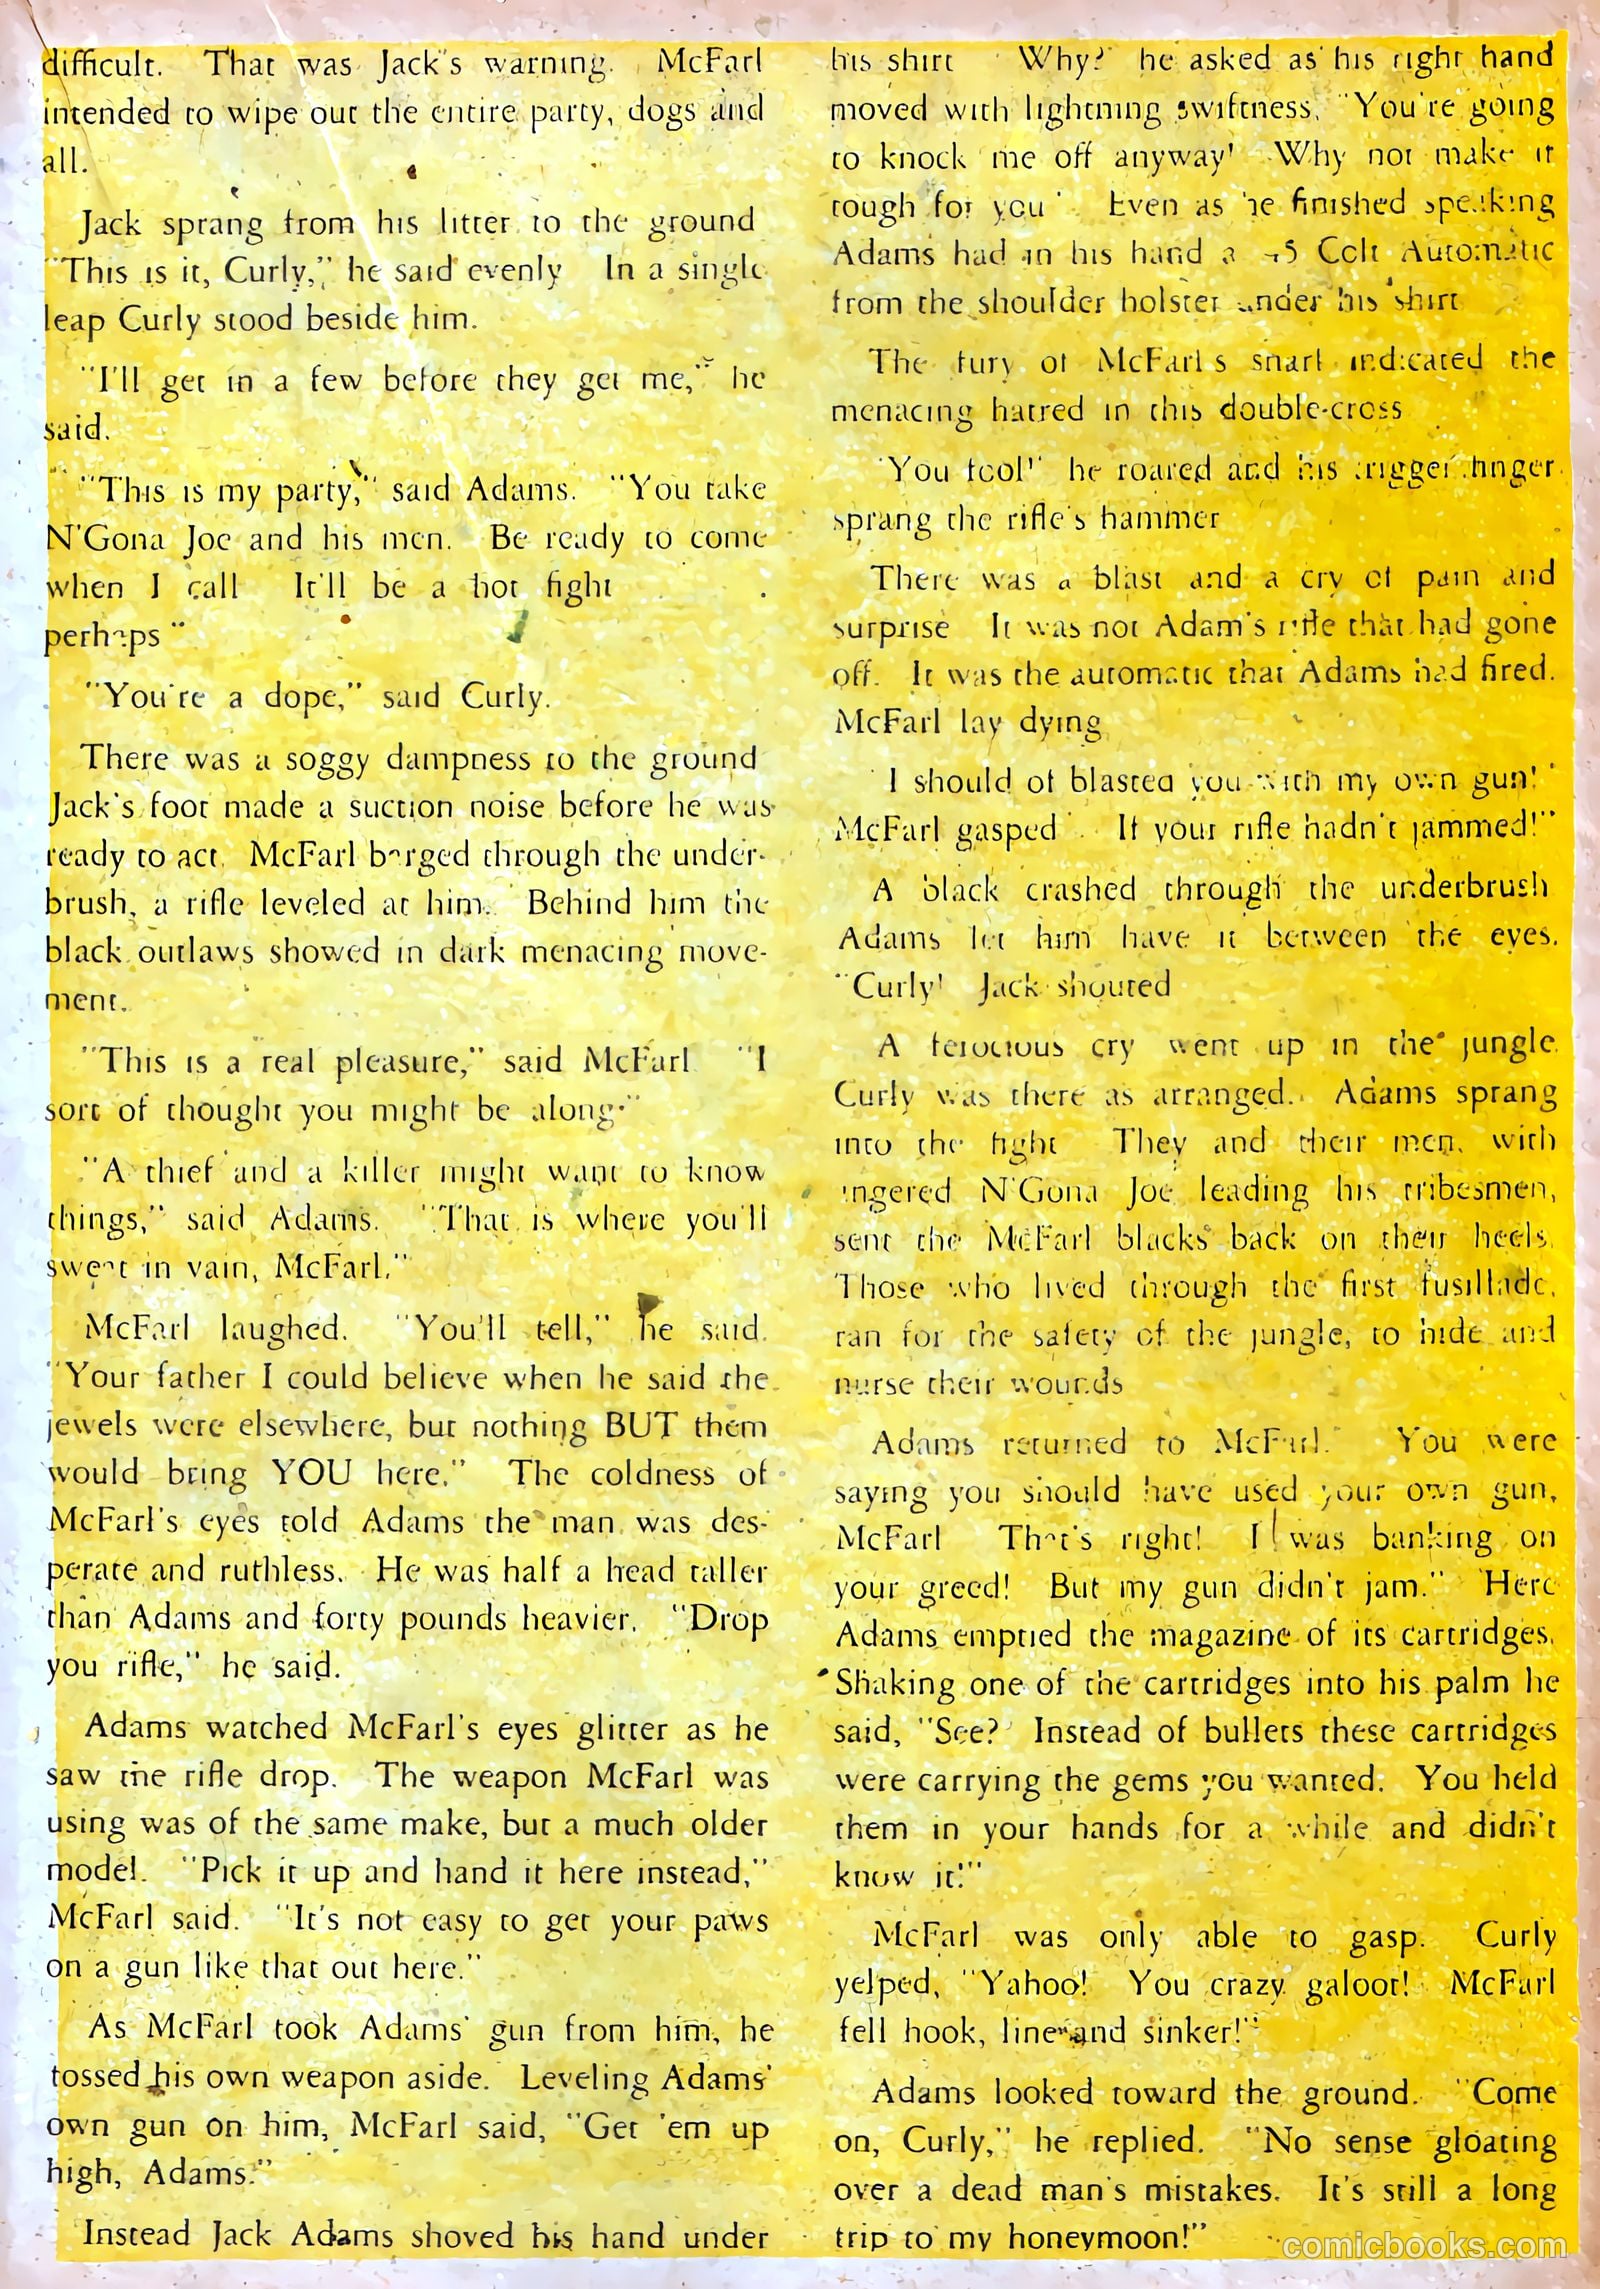 difficult. That was Jack's warning. McFarl
intended to wipe out the entire party, dogs and
all.
Jack sprang from his litter to the ground
"This is it, Curly," he said evenly In a single
leap Curly stood beside him.
"I'll get in a few before they get me," he
said.
"This is my party," said Adams. "You take
N'Gona Joe and his men. Be ready to come
when I call It'll be a hot fight
perhaps"
"You're a dope," said Curly.
There was a soggy dampness to the ground
Jack's foot made a suction noise before he was
ready to act. McFarl barged through the under-
brush, a rifle leveled at him. Behind him the
black outlaws showed in dark menacing move-
ment.
"This is a real pleasure," said McFarl "I
sort of thought you might be along."
"A thief and a killer might want to know
things," said Adams. "That is where you'll
sweat in vain, McFarl."
McFarl laughed. "You'll tell," he said.
"Your father I could believe when he said the
jewels were elsewhere, but nothing BUT them
would bring YOU here." The coldness of
McFarl's eyes told Adams the man was des-
perate and ruthless. He was half a head taller
than Adams and forty pounds heavier. "Drop
you rifle," he said.
Adams watched McFarl's eyes glitter as he
saw the rifle drop. The weapon McFarl was
using was of the same make, but a much older
model. "Pick it up and hand it here instead,"
McFarl said. "It's not easy to get your paws
on a gun like that out here."
As McFarl took Adams' gun from him, he
tossed his own weapon aside. Leveling Adams'
own gun on him, McFarl said, "Get 'em up
high, Adams."
Instead Jack Adams shoved his hand under
his shirt Why? he asked as his right hand
moved with lightning swiftness, "You're going
to knock me off anyway! Why not make it
tough for you' Even as he finished speaking
Adams had in his hand a 45 Colt Automatic
from the shoulder holster under his shirt
The fury of McFarl's snarl indicated the
menacing hatred in this double-cross
"You fool!" he roared and his trigger finger
sprang the rifle's hammer
There was a blast and a cry of pain and
surprise It was not Adam's rifle that had gone
off. It was the automatic that Adams had fired.
McFarl lay dying
"I should of blasted you with my own gun!"
McFarl gasped. If your rifle hadn't jammed!"
A black crashed through the underbrush
Adams let him have it between the eyes.
"Curly! Jack shouted
A ferocious cry went up in the jungle.
Curly was there as arranged. Adams sprang
into the fight They and their men, with
angered N'Gona Joe leading his tribesmen,
sent the McFarl blacks back on their heels.
Those who lived through the first fusillade,
ran for the safety of the jungle, to hide and
nurse their wounds
Adams returned to McFarl." You were
saying you should have used your own gun,
McFarl That's right! I was banking on
your greed! But my gun didn't jam." Here
Adams emptied the magazine of its cartridges.
Shaking one of the cartridges into his palm he
said, "See? Instead of bullets these cartridges
were carrying the gems you wanted. You held
them in your hands for a while and didn't
know it!"
McFarl was only able to gasp. Curly
yelped, "Yahoo! You crazy galoot! McFarl
fell hook, line and sinker!"
Adams looked toward the ground. "Come
on, Curly," he replied. "No sense gloating
over a dead man's mistakes. It's still a long
trip to my honeymoon!"
comicbooks.com